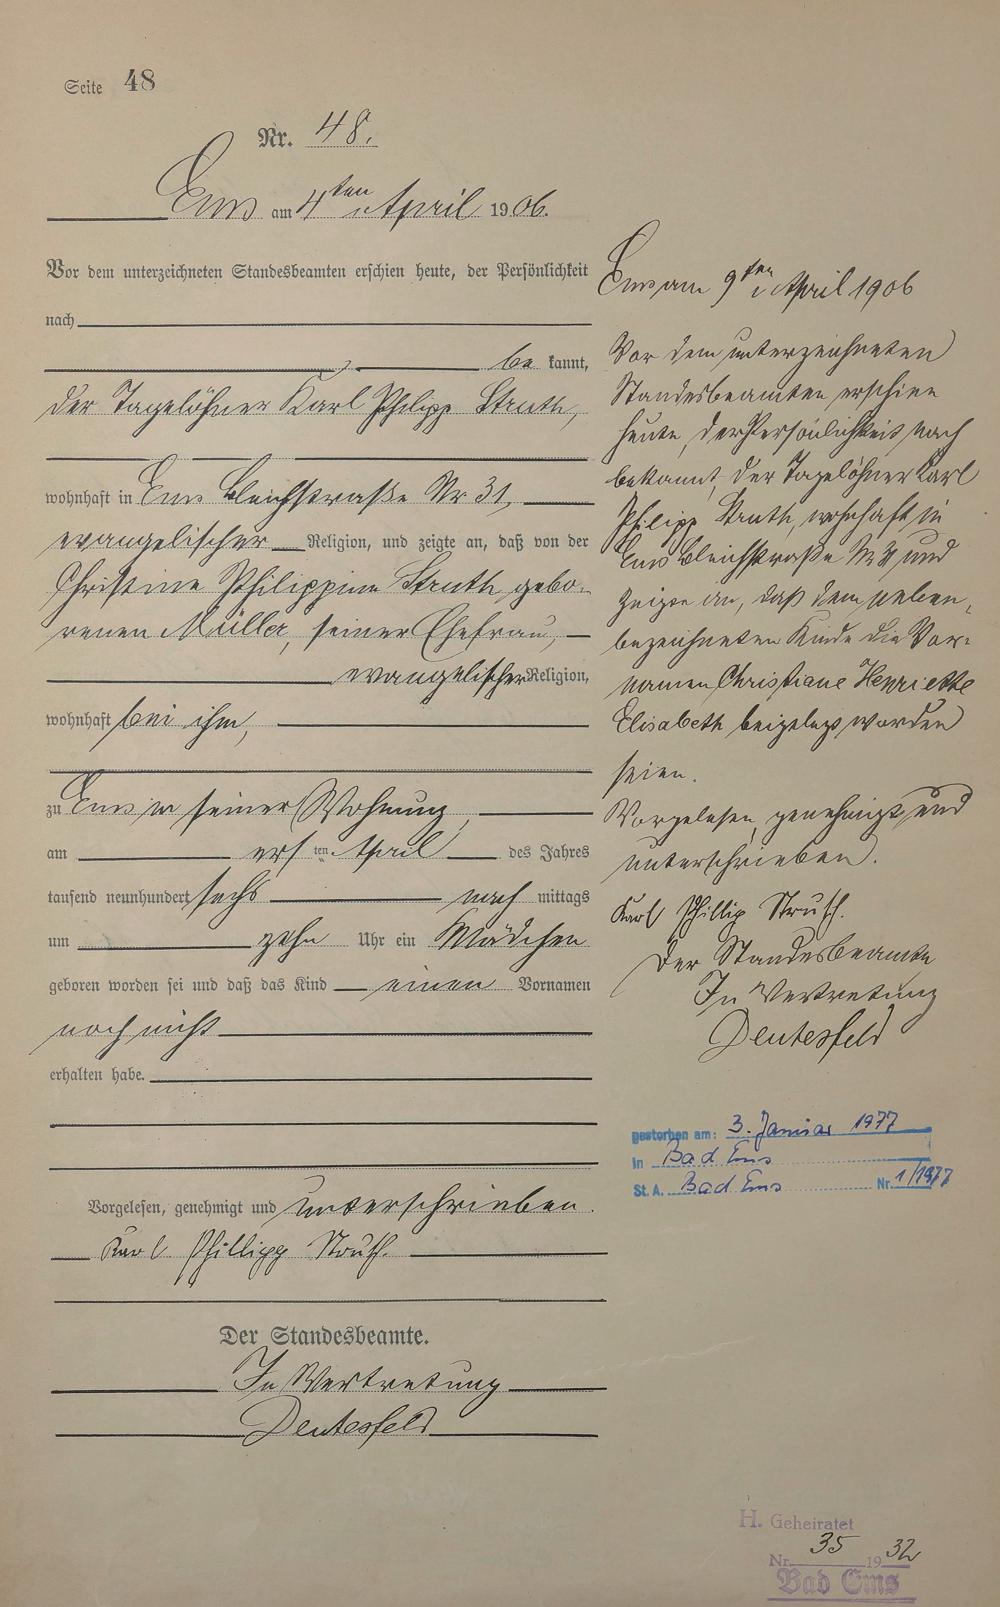 Seite 48
Nr. 48.
Ems am 4ten April 1906.
Vor dem unterzeichneten Standesbeamten erschien heute, der Persönlichkeit
nach
be kannt,
der Tagelöhner Karl Philipp Struth,
wohnhaft in Ems Bleichstraße Nr 31,
evangelischer Religion, und zeigte an, daß von der
Christine Philippine Struth gebo-
renen Müller, seiner Ehefrau,
evangelischer Religion,
wohnhaft bei ihm,
zu Ems in seiner Wohnung,
am ersten April des Jahres
tausend neunhundert sechs nach mittags
um zehn Uhr ein Mädchen
geboren worden sei und daß das Kind einen Vornamen
noch nicht
erhalten habe.
Vorgelesen, genehmigt und unterschrieben.
Karl Phillipp Struth.
Der Standesbeamte.
In Vertretung
Deutesfeld
Ems am 9ten April 1906
Vor dem unterzeichneten
Standesbeamten erschien
heute, der Persönlichkeit nach
bekannt, der Tagelöhner Karl
Philipp Struth, wohnhaft in
Ems Bleichstraße Nr 31 und
zeigte an, daß dem neben-
bezeichneten Kinde die Vor-
namen Christiane Henriette
Elisabeth beigelegt worden
seien.
Vorgelesen, genehmigt und
unterschrieben.
Karl Phillip Struth.
Der Standesbeamte
In Vertretung
Deutesfeld
gestorben am: 3. Januar 1977
in Bad Ems
St. A. Bad Ems Nr. 1/1977
H. Geheiratet
Nr. 35 1932
Bad Ems